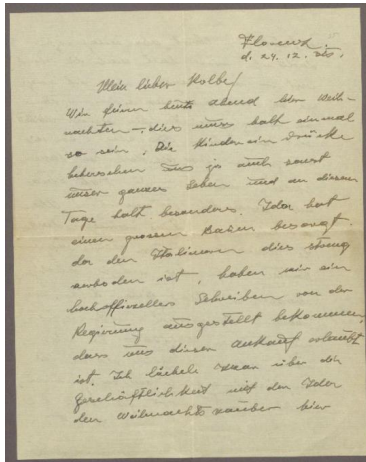 Florenz.
d. 24. 12.
Mein lieber Kolbe!
Wir feiern heute abend hier Weih-
nachten – dies muss halt einmal
so sein. Die Kindereindrücke
beherschen uns ja auch sonst
unser ganzes Leben und an diesem
Tage halt besonders. Idor hat
einen grossen Baum besorgt.
da den Italienern dies streng
verboten ist, haben wir ein
hochofficielles Schreiben von der
Regierung ausgestellt bekommen,
dass uns diesen Ankauf erlaubt
ist. Ich lächele zwar über die
Geschäftlichkeit mit der Idor
den Weihnachtszauber hier